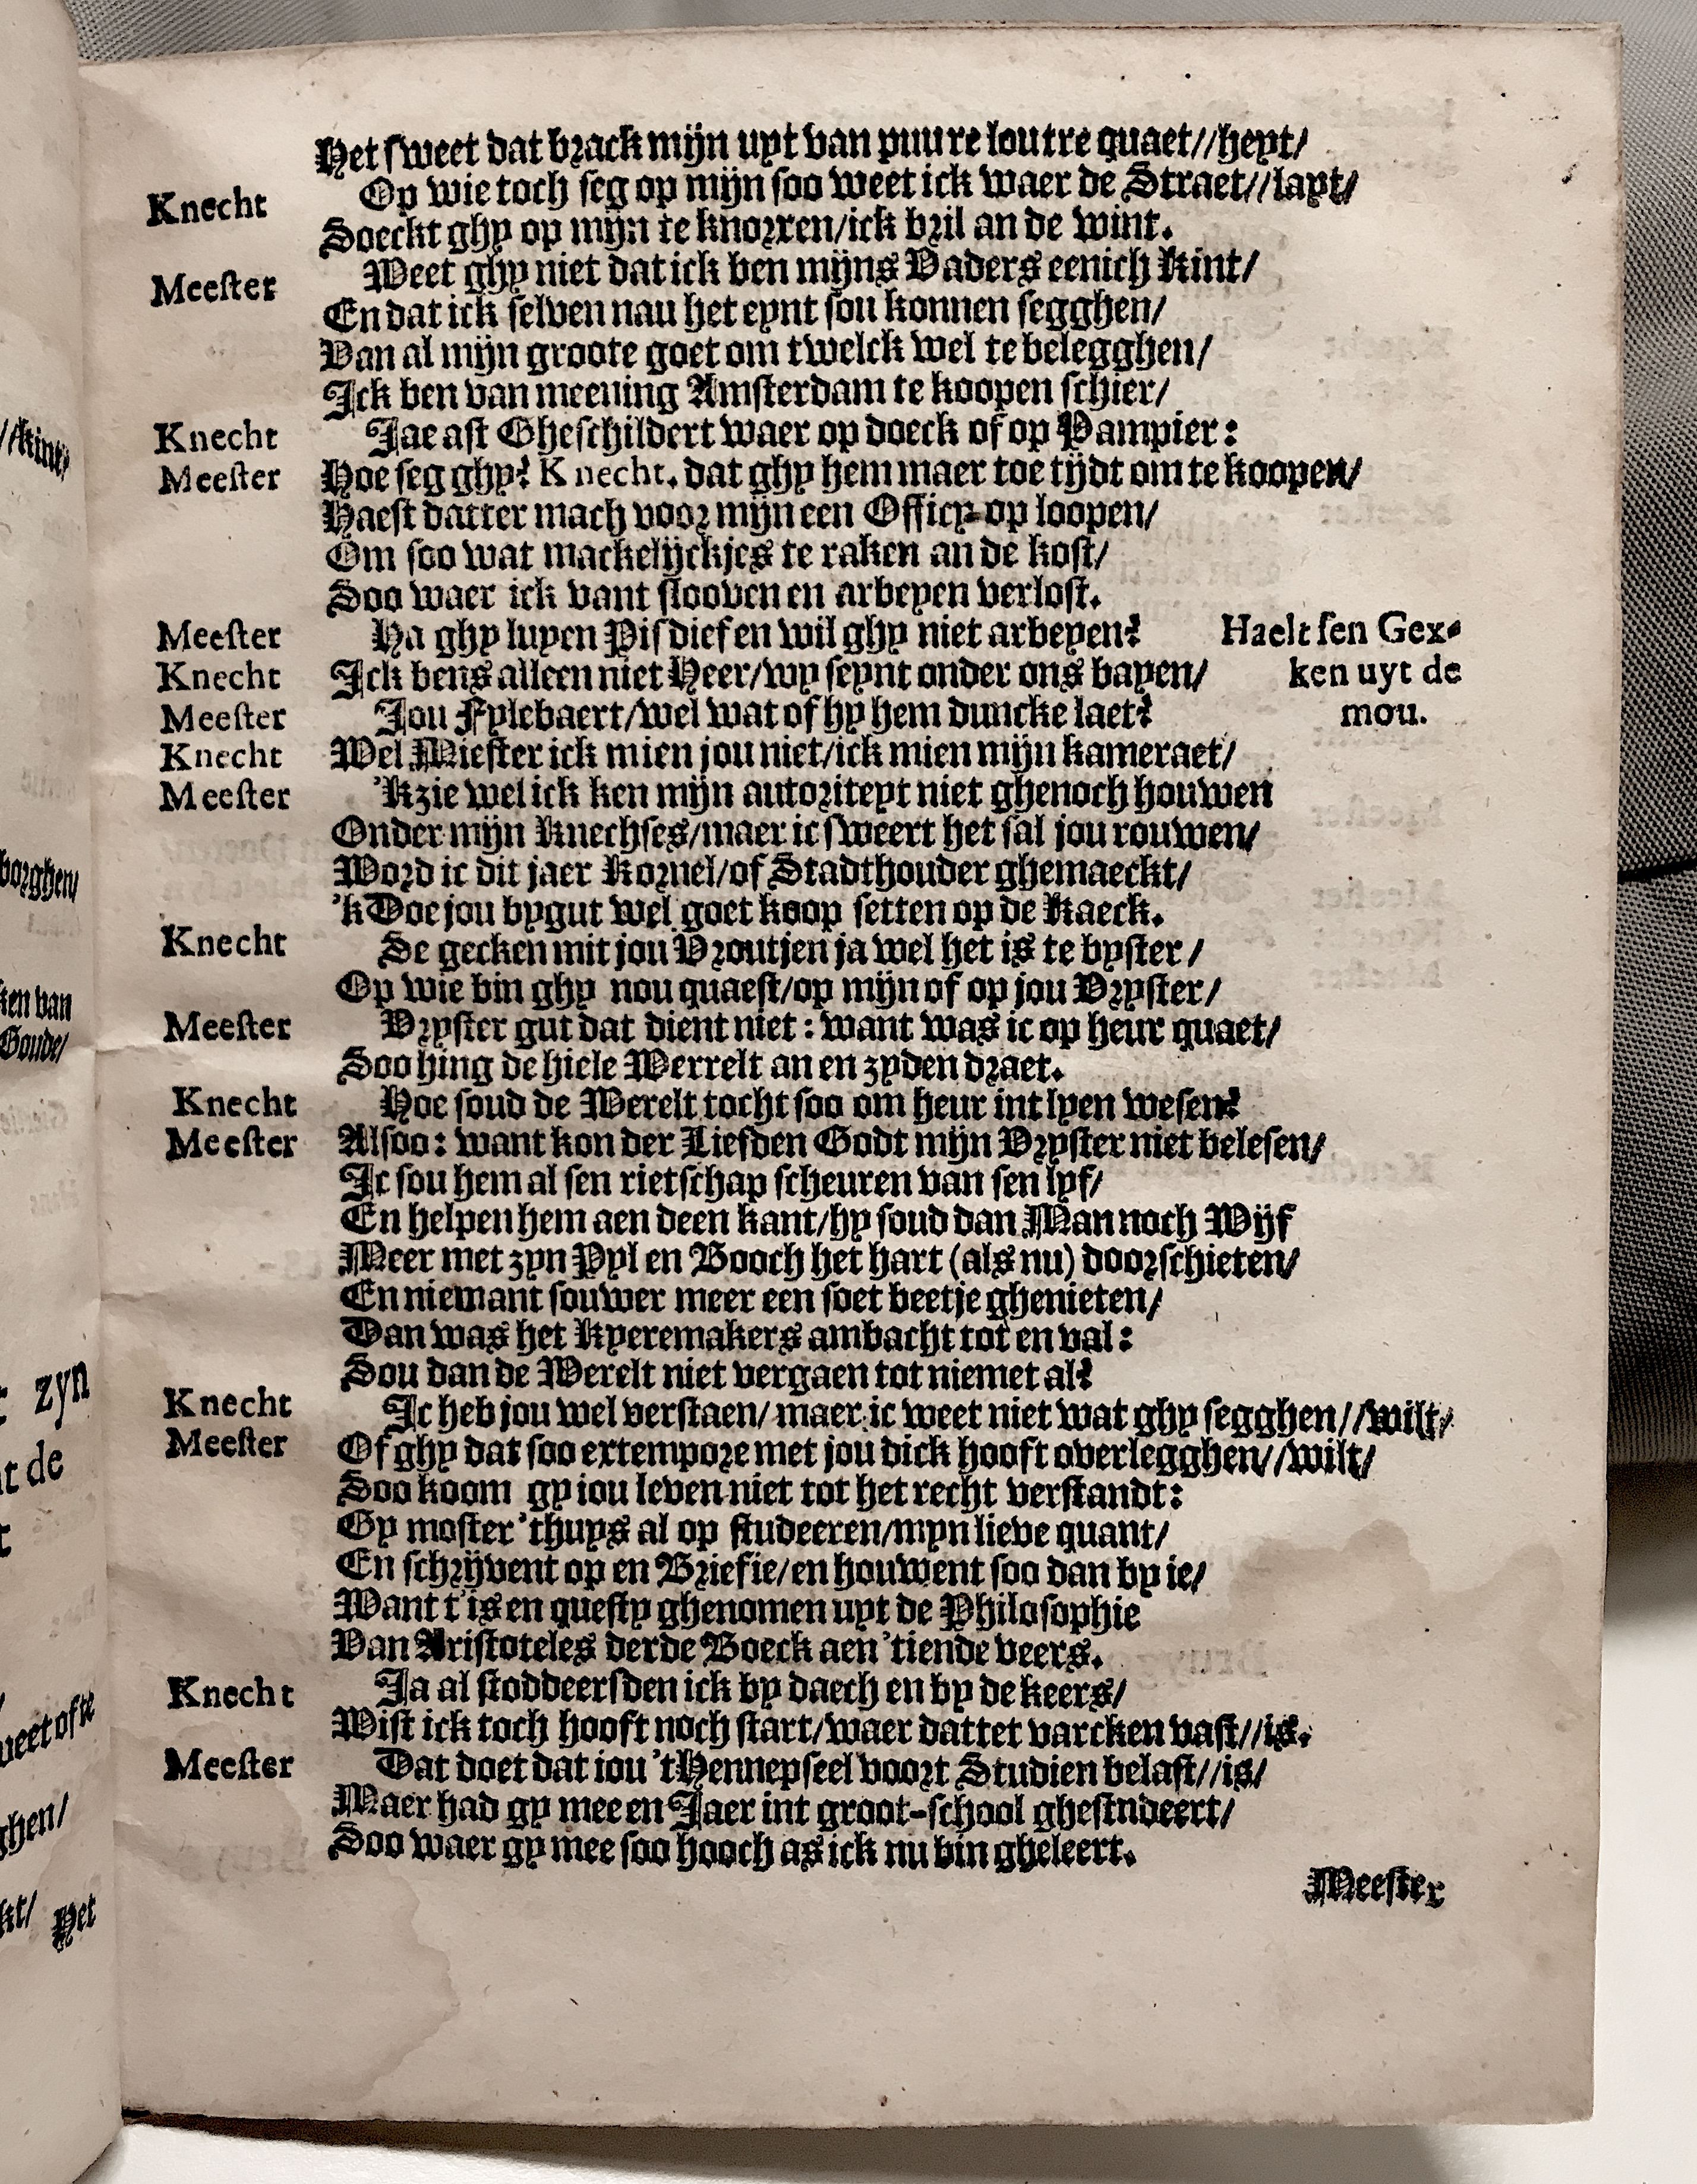 Het sweet dat brack mijn uyt van puure loutre quaet//heyt/
Knecht Op wie toch seg op mijn soo weet ick waer de Straet//layt/
Soeckt ghy op mijn te knorren/ick bril an de wint.
Meester Weet ghy niet dat ick ben mijns Vaders eenich kint/
En dat ick selven nau het eynt sou konnen segghen/
Van al mijn groote goet om twelck wel te belegghen/
Ick ben van meening Amsterdam te koopen schier/
Knecht Jae ast Gheschildert waer op doeck of op Pampier:
Meester Hoe seg ghy? Knecht. dat ghy hem maer toe tijdt om te koopen/
Haest datter mach voor mijn een Officy-op loopen/
Om soo wat mackelijckjes te raken an de kost/
Soo waer ick vant slooven en arbeyen verlost.
Meester Ha ghy luyen Pisdief en wil ghy niet arbeyen? Haelt sen Gex-
Knecht Ick bens alleen niet Heer/wy seynt onder ons bayen/ ken uyt de
Meester Jou Fylebaert/wel wat of hy hem duncke laet? mou.
Knecht Wel Miester ick mien jou niet/ick mien mijn kameraet/
Meester 'Kzie wel ick ken mijn autoriteyt niet ghenoch houwen
Onder mijn Knechses/maer ic sweert het sal jou rouwen/
Word ic dit jaer Kornel/of Stadthouder ghemaeckt/
'k Doe jou bygut wel goet koop setten op de Kaeck.
Knecht Se gecken mit jou Vroutjen ja wel het is te byster/
Op wie bin ghy nou quaest/op mijn of op jou Vryster/
Meester Vryster gut dat dient niet: want was ic op heur quaet/
Soo hing de hiele Werrelt an en zyden draet.
Knecht Hoe soud de Werelt tocht soo om heur int lyen wesen?
Meester Alsoo: want kon der Liefden Godt mijn Vryster niet belesen/
Ic sou hem al sen rietschap scheuren van sen lyf/
En helpen hem aen deen kant/hy soud dan Man noch Wijf
Meer met zyn Pyl en Booch het hart (als nu) doorschieten/
En niemant souwer meer een soet beetje ghenieten/
Dan was het Kyeremakers ambacht tot en val:
Sou dan de Werelt niet vergaen tot niemet al?
Knecht Ic heb jou wel verstaen/ maer ic weet niet wat ghy segghen//wilt/
Meester Of ghy dat soo extempore met jou dick hooft overlegghen//wilt/
Soo koom gy iou leven niet tot het recht verstandt:
Gy moster 'thuys al op studeeren/myn lieve quant/
En schrijvent op en Briefie/en houwent soo dan by ie/
Want t'is en questy ghenomen uyt de Philosophie
Van Aristoteles derde Boeck aen 'tiende veers.
Knecht Ja al stoddeersden ick by daech en by de keers/
Wist ick toch hooft noch start/waer dattet varcken vast//is.
Meester Dat doet dat iou 'tHennepseel voort Studien belast//is/
Maer had gy mee en Jaer int groot-school ghestndeert/
Soo waer gy mee soo hooch as ick nu bin gheleert.
Meester